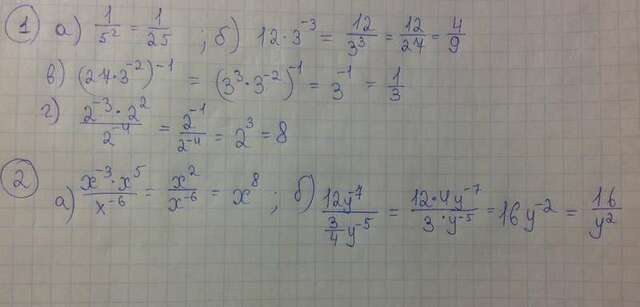 1 а) 1/5² = 1/25 ; б) 12·3⁻³ = 12/3³ = 12/27 = 4/9
в) (27·3⁻²)⁻¹ = (3³·3⁻²)⁻¹ = 3⁻¹ = 1/3
г) 2⁻³·2²/2⁻⁴ = 2⁻¹/2⁻⁴ = 2³ = 8
2 а) x⁻³·x⁵/x⁻⁶ = x²/x⁻⁶ = x⁸ ; б) 12y⁻⁷/(3/4 y⁻⁵) = 12·4y⁻⁷/3·y⁻⁵ = 16y⁻² = 16/y²